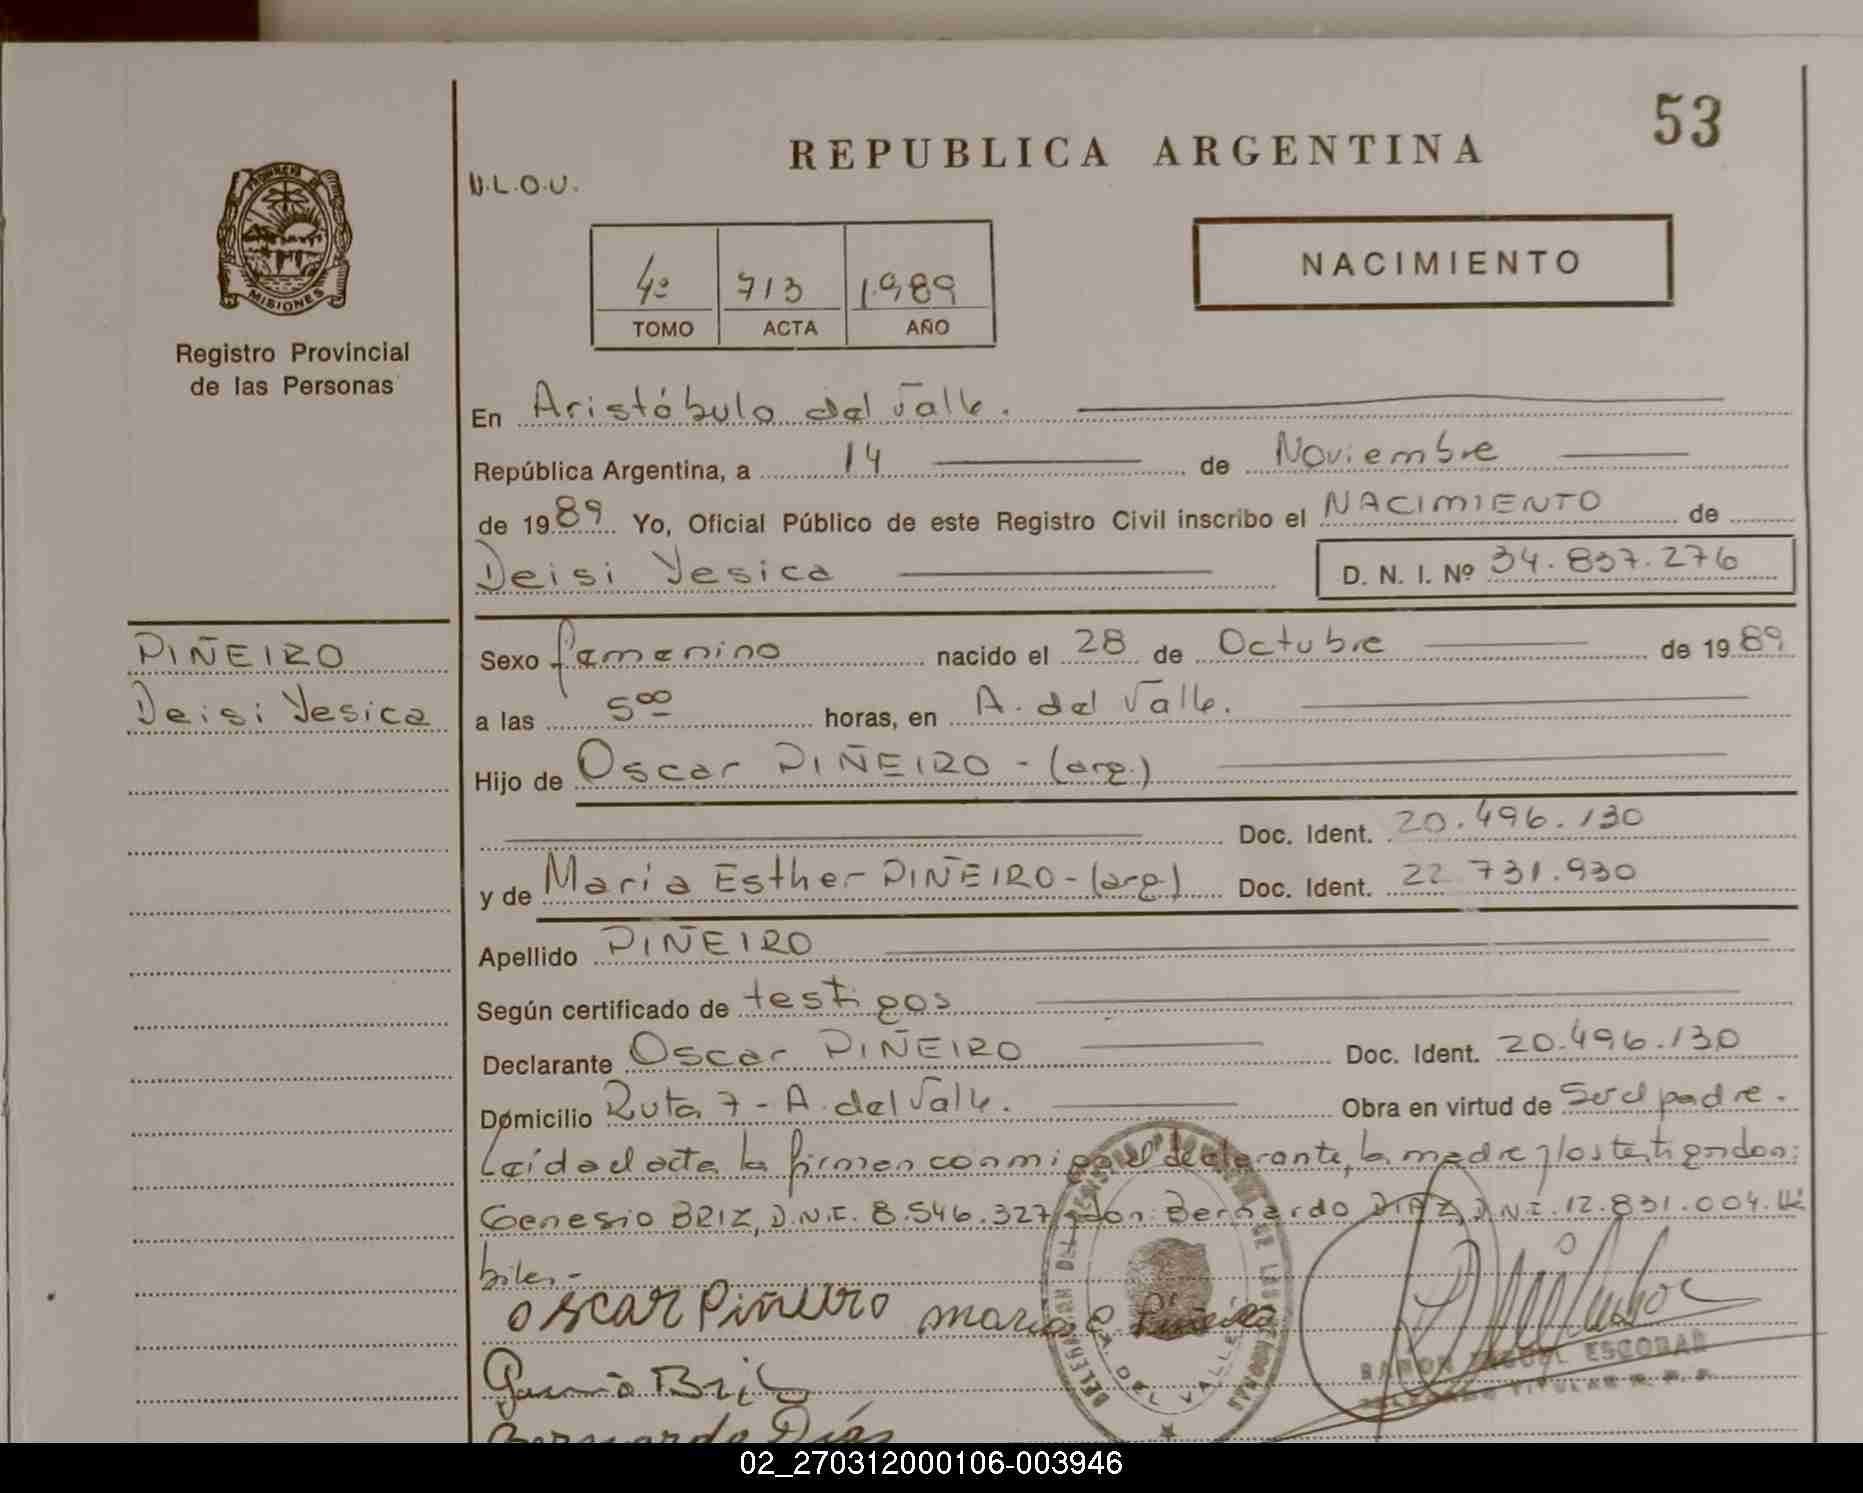 53
REPUBLICA ARGENTINA
PROVINCIA DE
MISIONES
Registro Provincial
de las Personas
N.L.O.U.
4º 713 1.989
TOMO ACTA AÑO
NACIMIENTO
En Aristóbulo del Valle.
República Argentina, a 14 de Noviembre
de 1989 Yo, Oficial Público de este Registro Civil inscribo el NACIMIENTO de
Deisi Yesica D. N. I. Nº 34.837.276
PIÑEIRO
Deisi Yesica
Sexo femenino nacido el 28 de Octubre de 1989
a las 5⁰⁰ horas, en A. del Valle.
Hijo de Oscar PIÑEIRO - (arg.)
Doc. Ident. 20.496.130
y de Maria Esther PIÑEIRO - (arg) Doc. Ident. 22 731.930
Apellido PIÑEIRO
Según certificado de testigos
Declarante Oscar PIÑEIRO Doc. Ident. 20.496.130
Domicilio Ruta 7 - A. del Valle. Obra en virtud de ser el padre.
Leída el acta la firman conmigo el declarante, la madre y los testigos don:
Genesio BRIZ, D.N.I. 8.546.327 y don: Bernardo DIAZ, D.N.I. 12.831.004. Há
biles -
oscar Piñeiro maria E Piñeiro
RAMON MIGUEL ESCOBAR
TITULAR R. P. P.
A. DEL VALLE
Bernardo Días
02_270312000106-003946